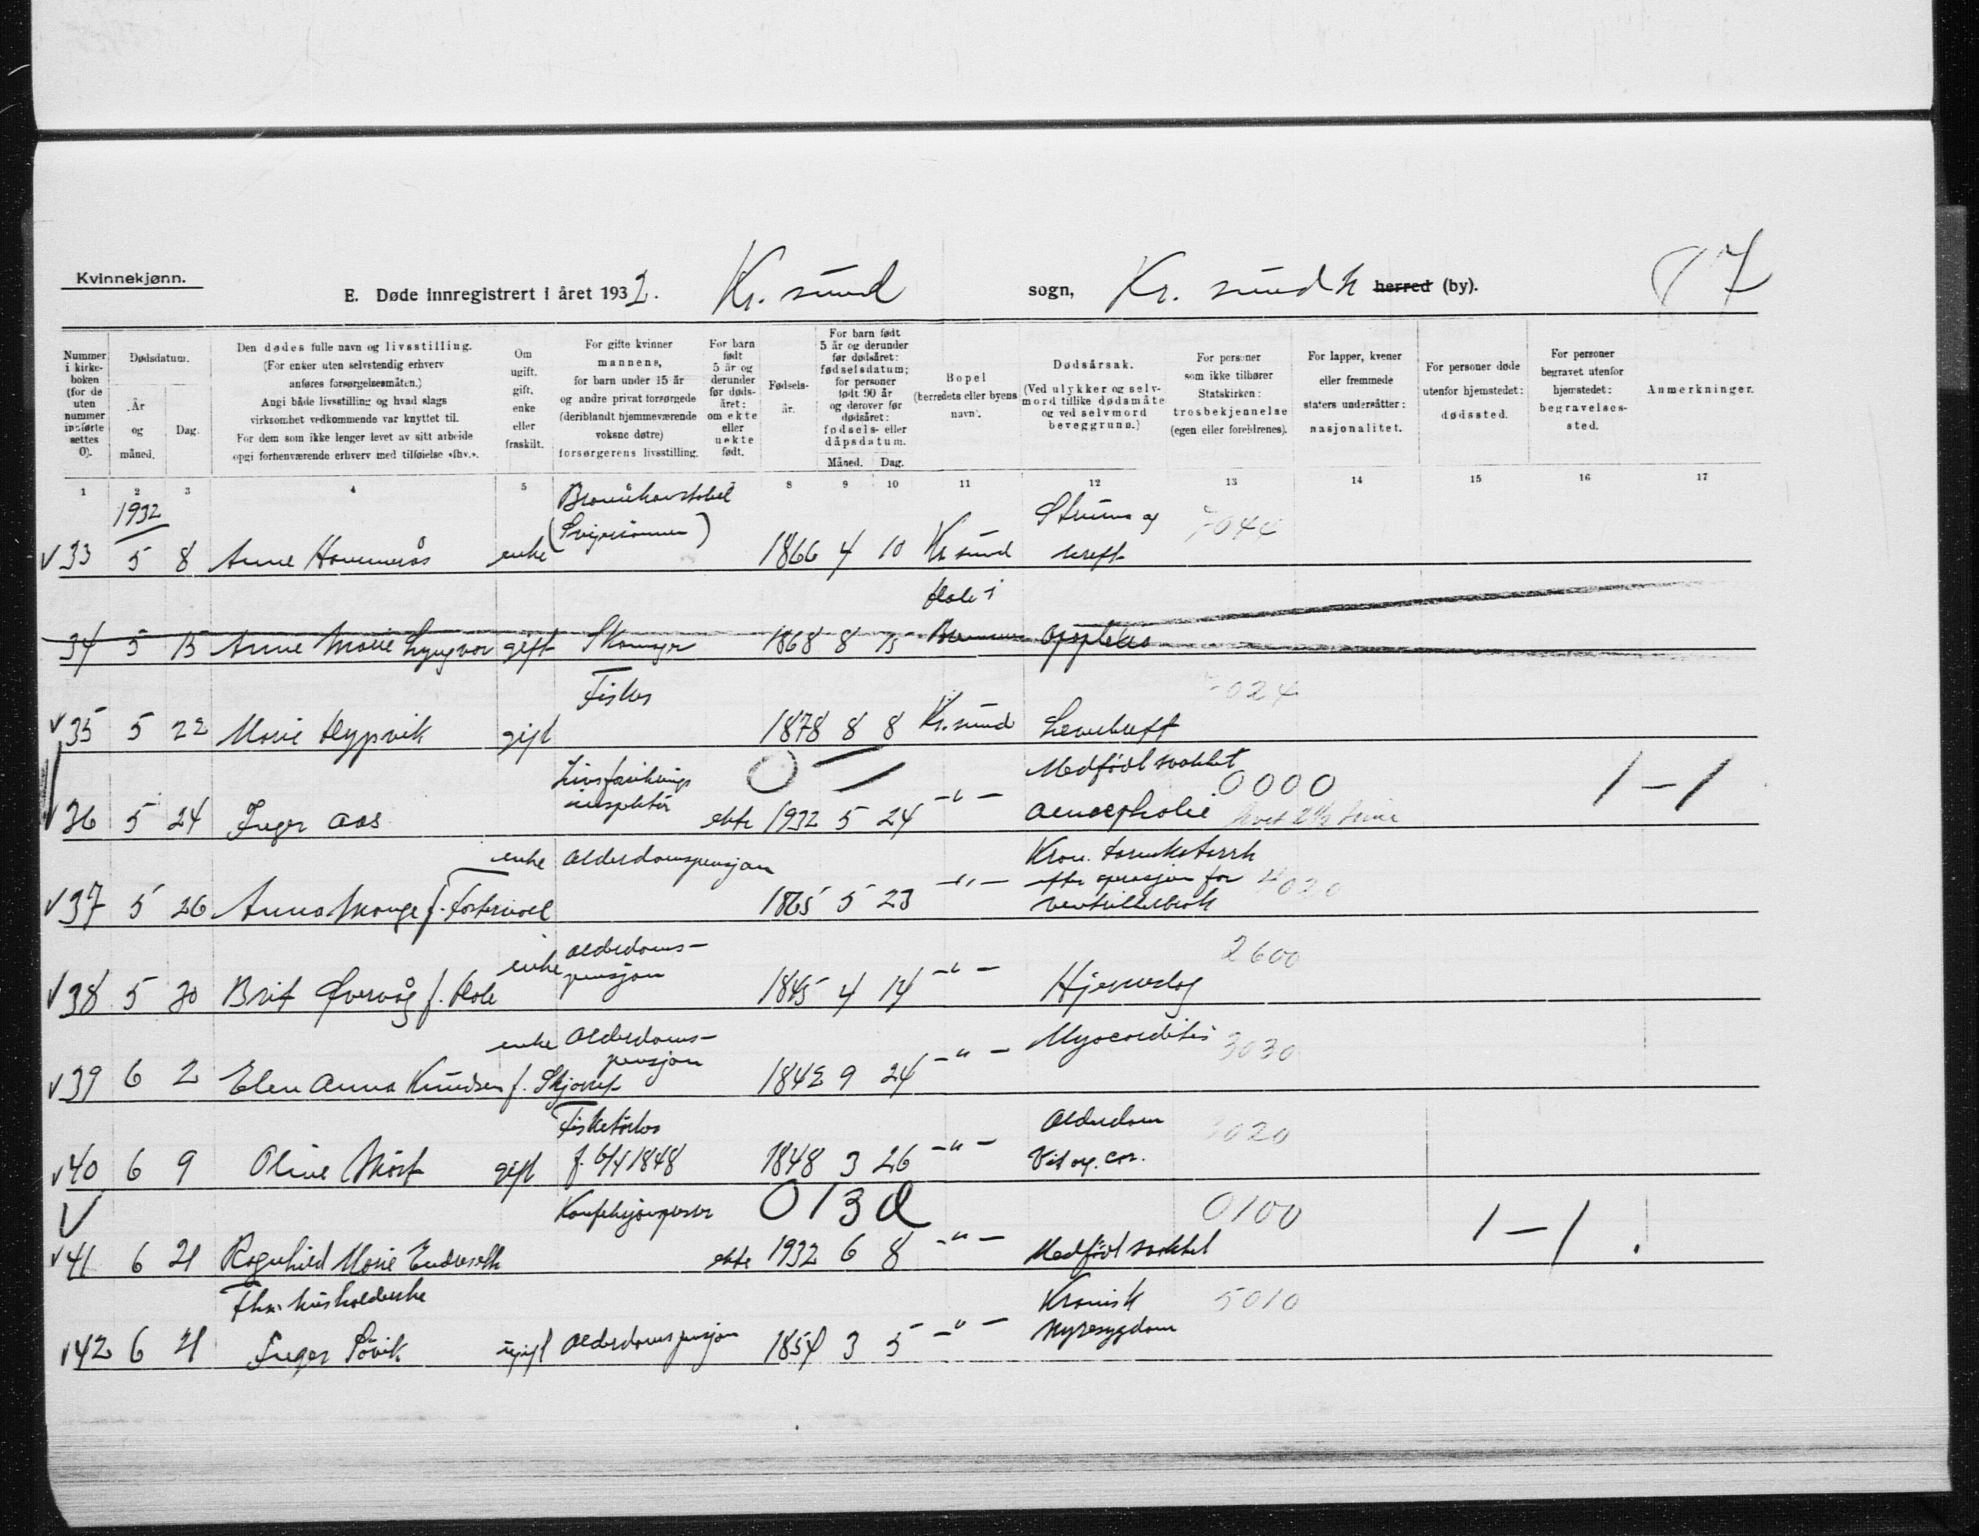 87
Kvinnekjønn.
E. Døde innregistrert i året 1932. Kr. sund sogn, Kr. sund N herred (by).
Nummer i kirkeboken (for de uten nummer innførte settes 0).
Dødsdatum.
År og måned.
Dag.
Den dødes fulle navn og livsstilling.
(For enker uten selvstendig erhverv
anføres forsørgelsesmåten.)
Angi både livsstilling og hvad slags
virksomhet vedkommende var knyttet til.
For dem som ikke lenger levet av sitt arbeide
opgi forhenværende erhverv med tilføielse «fhv.».
Om ugift, gift, enke eller fraskilt.
For gifte kvinner
mannens,
for barn under 15 år
og andre privat forsørgede
(deriblandt hjemmeværende
voksne døtre)
forsørgerens livsstilling.
For barn født 5 år og derunder før dødsåret: om ekte eller uekte født.
Fødselsår.
For barn født
5 år og derunder
før dødsåret:
fødselsdatum;
for personer
født 90 år
og derover før
dødsåret:
fødsels- eller
dåpsdatum.
Måned. Dag.
Bopel
(herredets eller byens
navn).
Dødsårsak.
(Ved ulykker og selvmord tillike dødsmåte
og ved selvmord
beveggrunn.)
For personer
som ikke tilhører
Statskirken:
trosbekjennelse
(egen eller foreldrenes).
For lapper, kvener
eller fremmede
staters undersåtter:
nasjonalitet.
For personer døde
utenfor hjemstedet:
dødssted.
For personer
begravet utenfor
hjemstedet:
begravelsessted.
Anmerkninger.
1 2 3 4 5 8 9 10 11 12 13 14 15 16 17
1932
33 5 8 Anne Hammerås enke 1866 4 10 Kr sund Struma og kreft
34 5 15 Anne Marie Lyngvær gift 1868 8 15 Hole i Bremsnes Apopleksi
35 5 22 Marie Nypvik gift Fisker 1878 8 8 Kr. sund Leverkreft 7024
0
36 5 24 Inger Aas Livsforsikrings inspektør ekte 1932 5 24 -"- Medfødt svakhet 0000 1-1
37 5 26 Anna Mauge f. enke Alderdomspensjon 1865 5 23 -"- Kron. tarmkatarrh efter operasjon for 4020
38 5 30 Brit Øvervåg f. Hole enke Alderdomspensjon 1845 4 14 -"- Hjerneslag 2600
39 6 2 Elen Anna Knudsen f. enke Alderdomspensjon 1842 9 24 -"- Myocarditis 3030
40 6 9 Oline gift f. 6/4 1848 1848 3 26 -"- Alderdom Vit. org. cor. 3020
013d
41 6 21 Ragnhild Marie ekte 1932 6 8 -"- Medfødt svakhet 0100 1-1
42 6 21 Fhv. husholderske Inger Søvik ugift Alderdomspensjon 1854 3 5 -"- Kronisk nyresygdom 5010